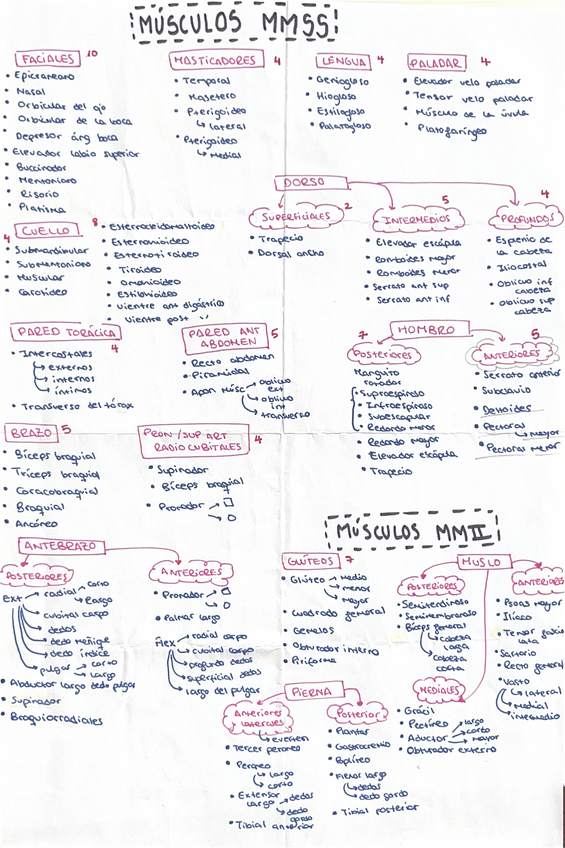 MÚSCULOS MMSS:
FACIALES 10
• Epicraneano
• Nasal
• Orbicular del ojo
• Orbicular de la boca
• Depresor áng boca
• Elevador labio superior
• Buccinador
• Mentoniano
• Risorio
• Platisma
MASTICADORES 4
• Temporal
• Masetero
• Pterigoideo
↳ lateral
• Pterigoideo
↳ Medial
LENGUA 4
• Geniogloso
• Hiogloso
• Estilogloso
• Palatogloso
PALADAR 4
• Elevador velo paladar
• Tensor velo paladar
• Músculo de la úvula
• Platofaríngeo
DORSO
SUPERFICIALES 2
• Trapecio
• Dorsal ancho
INTERMEDIOS 5
• Elevador escápula
• Romboides mayor
• Romboides menor
• Serrato ant sup
• Serrato ant inf
PROFUNDOS 4
• Esplenio de
la cabeza
• Iliocostal
• Oblicuo inf
cabeza
• Oblicuo sup
cabeza
CUELLO 8
4
• Submandibular
• Submentoniano
• Muscular
• Carotídeo
• Esternocleidomastoideo
• Esternohioideo
• Esternotiroideo
• Tiroideo
• Omohioideo
• Estilohioideo
• Vientre ant digástrico
• Vientre post
PARED TORÁCICA 4
• Intercostales
↳ externos
↳ internos
↳ íntimos
• Transverso del tórax
PARED ANT
ABDOMEN 5
• Recto abdomen
• Piramidal
• Apon Músc → oblicuo
ext
→ oblicuo
int
→ transverso
HOMBRO
Posteriores 7
Manguito
rotador
• Supraespinoso
• Infraespinoso
• Subescapular
• Redondo menor
• Redondo mayor
• Elevador escápula
• Trapecio
ANTERIORES 5
• Serrato anterior
• Subclavio
• Deltoides
• Pectoral
↳ mayor
• Pectoral menor
BRAZO 5
• Bíceps braquial
• Tríceps braquial
• Coracobraquial
• Braquial
• Ancóneo
PRON/SUP ART
RADIOCUBITALES 4
• Supinador
• Bíceps braquial
• Pronador → □
→ O
ANTEBRAZO
POSTERIORES
Ext → radial → corto
→ largo
→ cubital carpo
→ dedos
→ dedo meñique
→ dedo índice
→ pulgar → corto
→ largo
• Abductor largo dedo pulgar
• Supinador
• Braquiorradiales
ANTERIORES
• Pronador → □
→ O
• Palmar largo
• Flex → radial carpo
→ cubital carpo
→ profundo dedos
→ superficial dedos
→ largo del pulgar
MÚSCULOS MMII
GLÚTEOS 7
• Glúteo → medio
→ menor
→ mayor
• Cuadrado femoral
• Gemelos
• Obturador interno
• Piriforme
MUSLO
POSTERIORES
• Semitendinoso
• Semimembranoso
• Bíceps femoral
↳ cabeza
larga
↳ cabeza
corta
ANTERIORES
• Psoas mayor
• Ilíaco
• Tensor
lata fascia
• Sartorio
• Recto femoral
• Vasto
↳ lateral
↳ medial
↳ intermedio
MEDIALES
• Grácil
• Pectíneo
• Aductor → largo
→ corto
→ mayor
• Obturador externo
PIERNA
Anteriores
laterales
↳ evierten
• Tercer peroneo
• Peroneo
↳ largo
↳ corto
• Extensor
largo → dedos
↳ dedo
gordo
• Tibial anterior
Posterior
• Plantar
• Gastrocnemio
• Poplíteo
• Flexor largo
↳ dedos
↳ dedo gordo
• Tibial posterior